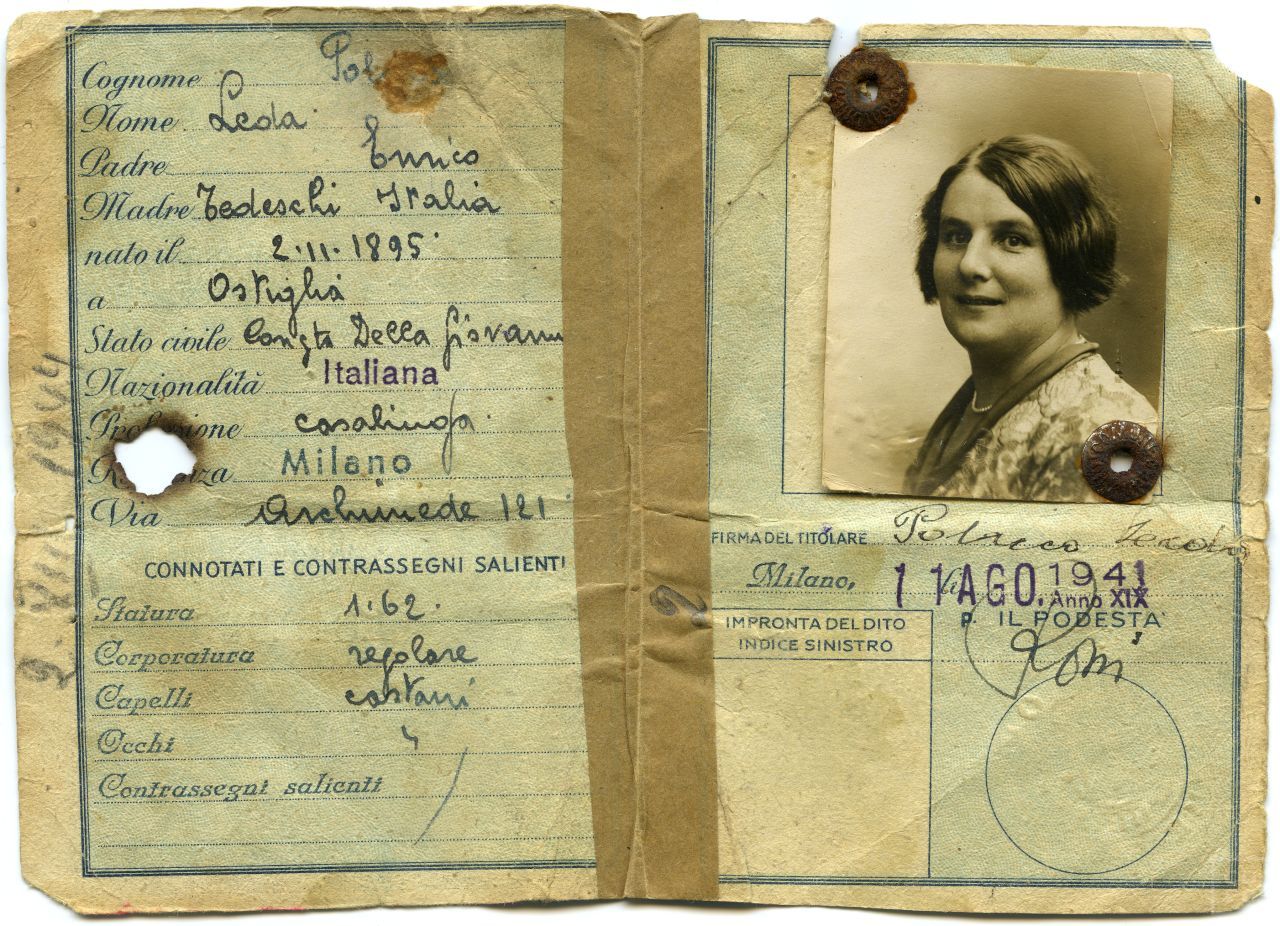 Cognome
Nome Leda
Padre Enrico
Madre Tedeschi Italia
nato il 2·11·1895
a Ostiglia
Stato civile Congta Della Giovanni
Nazionalità Italiana
casalinga
Milano
Via Archimede 121
CONNOTATI E CONTRASSEGNI SALIENTI
Statura 1·62·
Corporatura regolare
Capelli castani
Occhi "
Contrassegni salienti
1944
2
FIRMA DEL TITOLARE
Milano, li 11 AGO. 1941
Anno XIX
p. IL PODESTÀ
IMPRONTA DEL DITO
INDICE SINISTRO